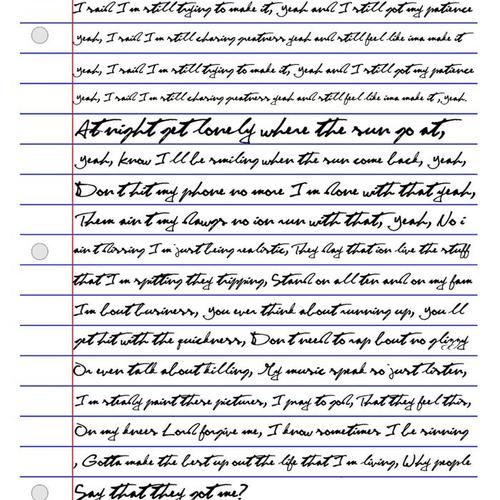 I said I'm still trying to make it, yeah and I still got my patience
yeah, I said I'm still chasing greatness yeah and still feel like ima make it
yeah, I said I'm still trying to make it, yeah and I still got my patience
yeah, I said I'm still chasing greatness yeah and still feel like ima make it, yeah.
At night get lonely where the sun go at,
yeah, know I'll be smiling when the sun come back, yeah,
Don't hit my phone no more I'm done with that yeah,
Them ain't my dawgs no ion run with that, yeah, No i
ain't dissing I'm just being realistic, They say that ion live the stuff
that I'm spitting they tripping, Stand on all ten and on my fam
I'm bout business, you ever think about running up, you'll
get hit with the quickness, Don't need to rap bout no glizzy
Or even talk about killing, My music speak so just listen,
I'm steady paint these pictures, I pray to god, That they feel this,
On my knees Lord forgive me, I know sometimes I be sinning
, Gotta make the best up out the life that I'm living, Why people
Say that they got me?